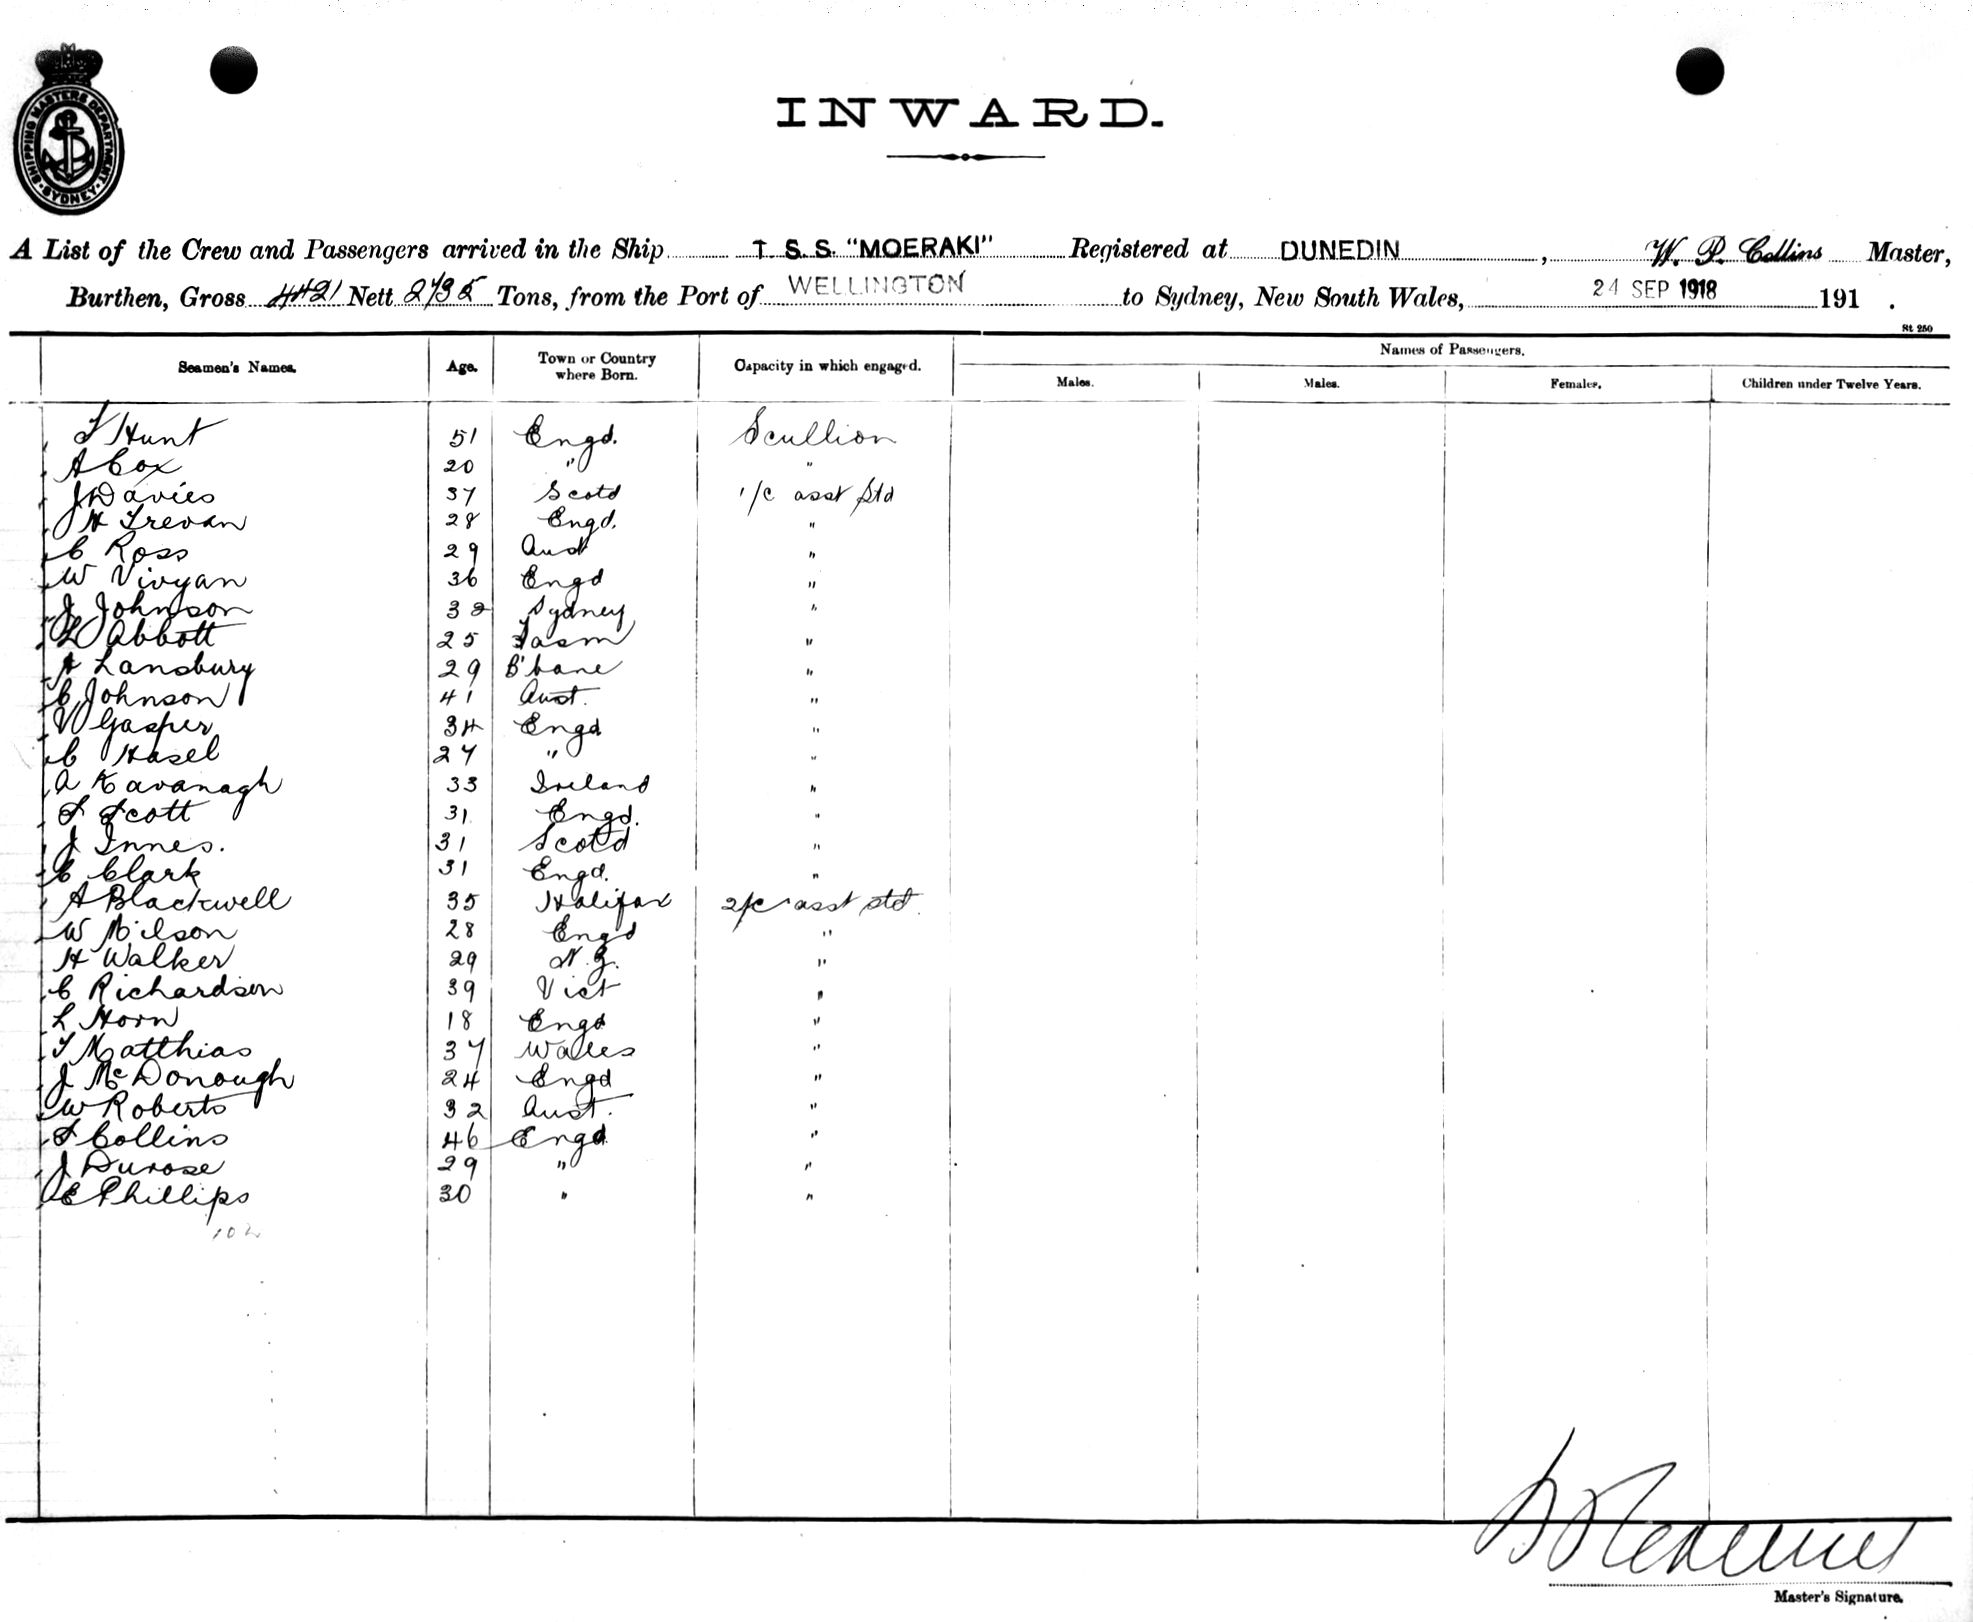 SHIPPING MASTERS DEPARTMENT
SYDNEY
INWARD.
A List of the Crew and Passengers arrived in the Ship T. S. S. "MOERAKI" Registered at DUNEDIN, W. P. Collins Master,
Burthen, Gross 4421 Nett 2735 Tons, from the Port of WELLINGTON to Sydney, New South Wales, 24 SEP 1918 191 .
St 250
Seamen's Names. Age. Town or Country where Born. Capacity in which engaged. Names of Passengers.
Males. Males. Females. Children under Twelve Years.
T Hunt 51 Engd. Scullion
A Cox 20 " "
J Davies 37 Scotd 1/c asst Std
H Trevan 28 Engd. "
C Ross 29 Aust "
W Vivyan 36 Engd "
J Johnson 32 Sydney "
L Abbott 25 Tasm "
A Lansbury 29 B'bane "
C Johnson 41 Aust. "
V Gasper 34 Engd "
C Hasel 27 " "
A Kavanagh 33 Ireland "
S Scott 31 Engd. "
J Innes. 31 Scotd "
C Clark 31 Engd. "
A Blackwell 35 Halifax 2/c asst std.
W Milson 28 Engd "
H Walker 29 N.Z. "
C Richardson 39 Vict "
L Horn 18 Engd "
T Matthias 37 Wales "
J McDonough 24 Engd "
W Roberts 32 Aust. "
S Collins 46 Engd "
J Durose 29 " "
E Phillips 30 " "
102
Master's Signature.